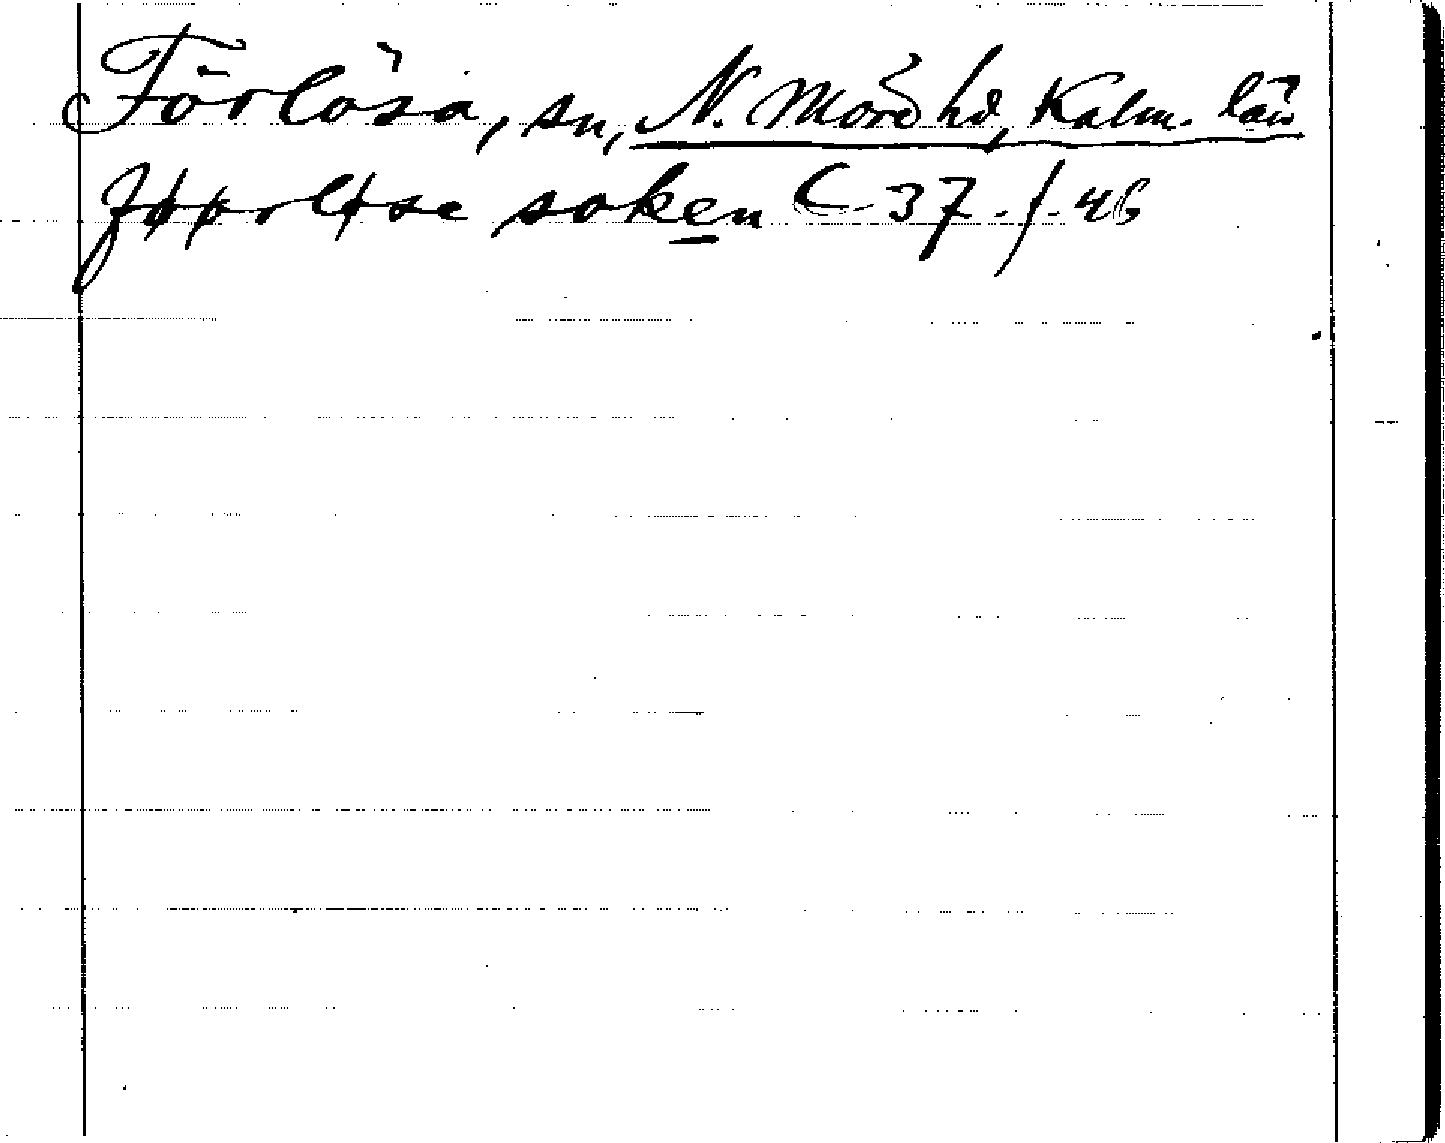 Förlösa, sn, N. Möre hd, Kalm. län
føørløse soken C 37. f. 46